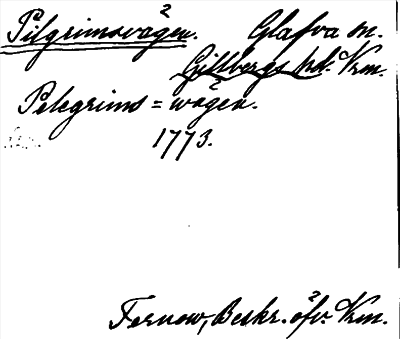 Pilgrimsvägen. Glafva sn.
Gillbergs hd. Vrm.
Pelegrims=wägen.
1773.
Fernow, Beskr. öfv. Vrm.